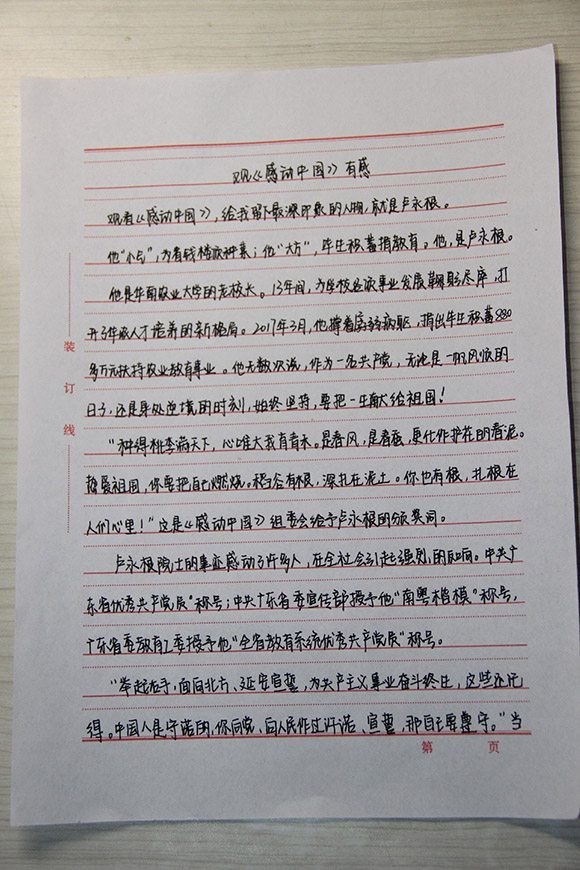 观《感动中国》有感
观看《感动中国》，给我留下最深印象的人物，就是卢永根。
他“小气”，为省钱搭旅种菜；他“大方”，毕生积蓄捐教育。他，是卢永根。
他是华南农业大学的老校长。13年间，为学校发展事业发展鞠躬尽瘁，打
开了华农人才培养的新格局。2017年3月，他撑着病弱病躯，捐出毕生积蓄880
多万元扶持农业教育事业。他无数次说，作为一名共产党，无论是一帆风顺的
日子，还是身处逆境的时刻，始终坚持，要把一生献给祖国！
“种得桃李满天下，心唯大我育青禾。是春风，是春蚕，更化作护花的春泥。
热爱祖国，你要把自己燃烧。稻谷有根，深扎在泥土。你也有根，扎根在
人们心里！”这是《感动中国》组委会给予卢永根的颁奖词。
卢永根院士的事迹感动了许多人，在全社会引起强烈的反响。中共广
东省优秀共产党员”称号；中共广东省委宣传部授予他“南粤楷模”称号，
广东省委教育工委授予他“全省教育系统优秀共产党员”称号。
“举起右手，面向北方、延安宣誓，为共产主义事业奋斗终生，这些还记
得。中国人是守诺的，你向党、向人民作过许诺、宣誓，那自己要遵守。”当
装
订
线
第 页